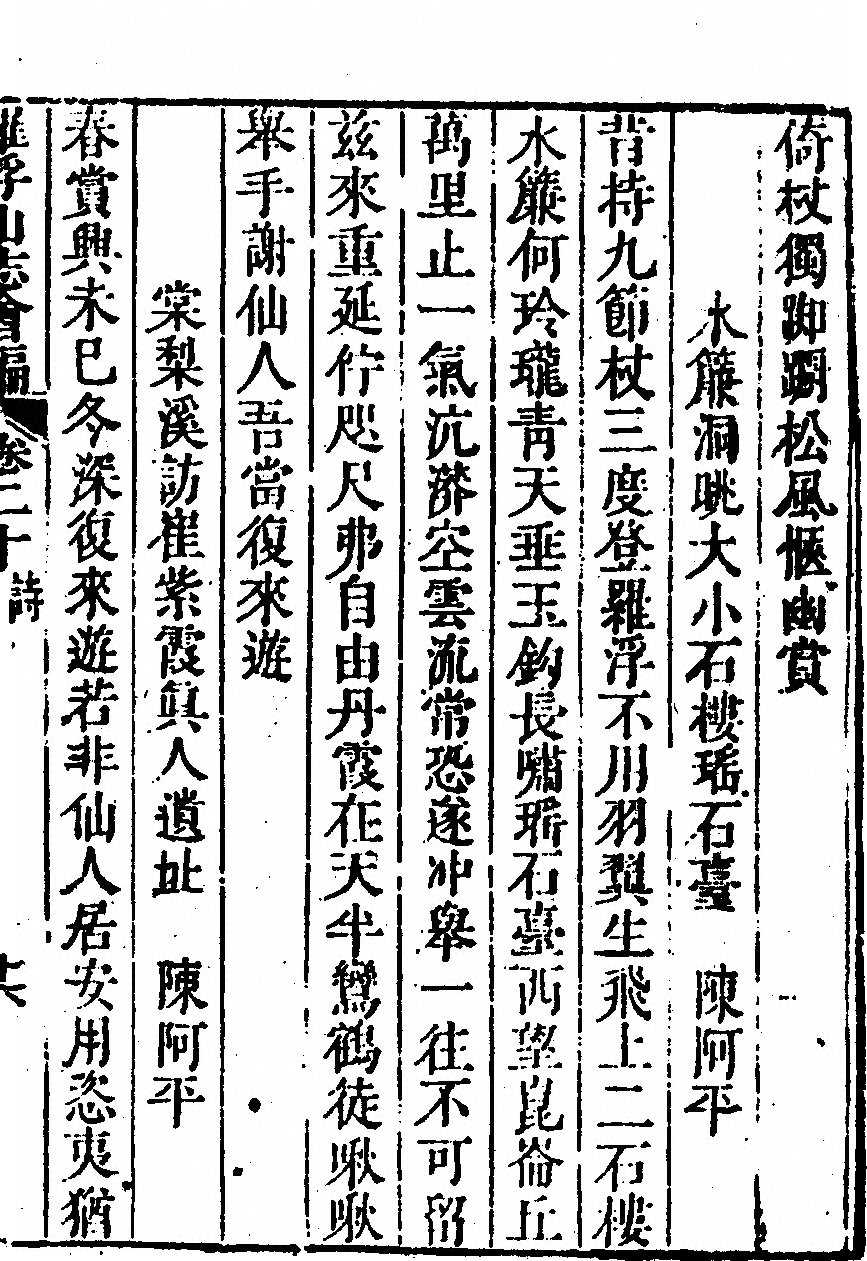 倚杖獨踟躕松風愜幽賞
水簾洞眺大小石樓瑤石臺　陳阿平
昔持九節杖三度登羅浮不用羽翼生飛上二石樓
水簾何玲瓏青天垂玉鈎長嘯瑤石臺西望崑崙丘
萬里止一氣沆漭空雲流常恐遂冲舉一往不可留
茲來重延佇咫尺弗自由丹霞在天半鸞鶴徒啾啾
舉手謝仙人吾當復來遊
棠梨溪訪崔紫霞眞人遺址　陳阿平
春賞興未已冬深復來遊若非仙人居安用恣夷猶
羅浮山志會編　卷二十　詩　十六